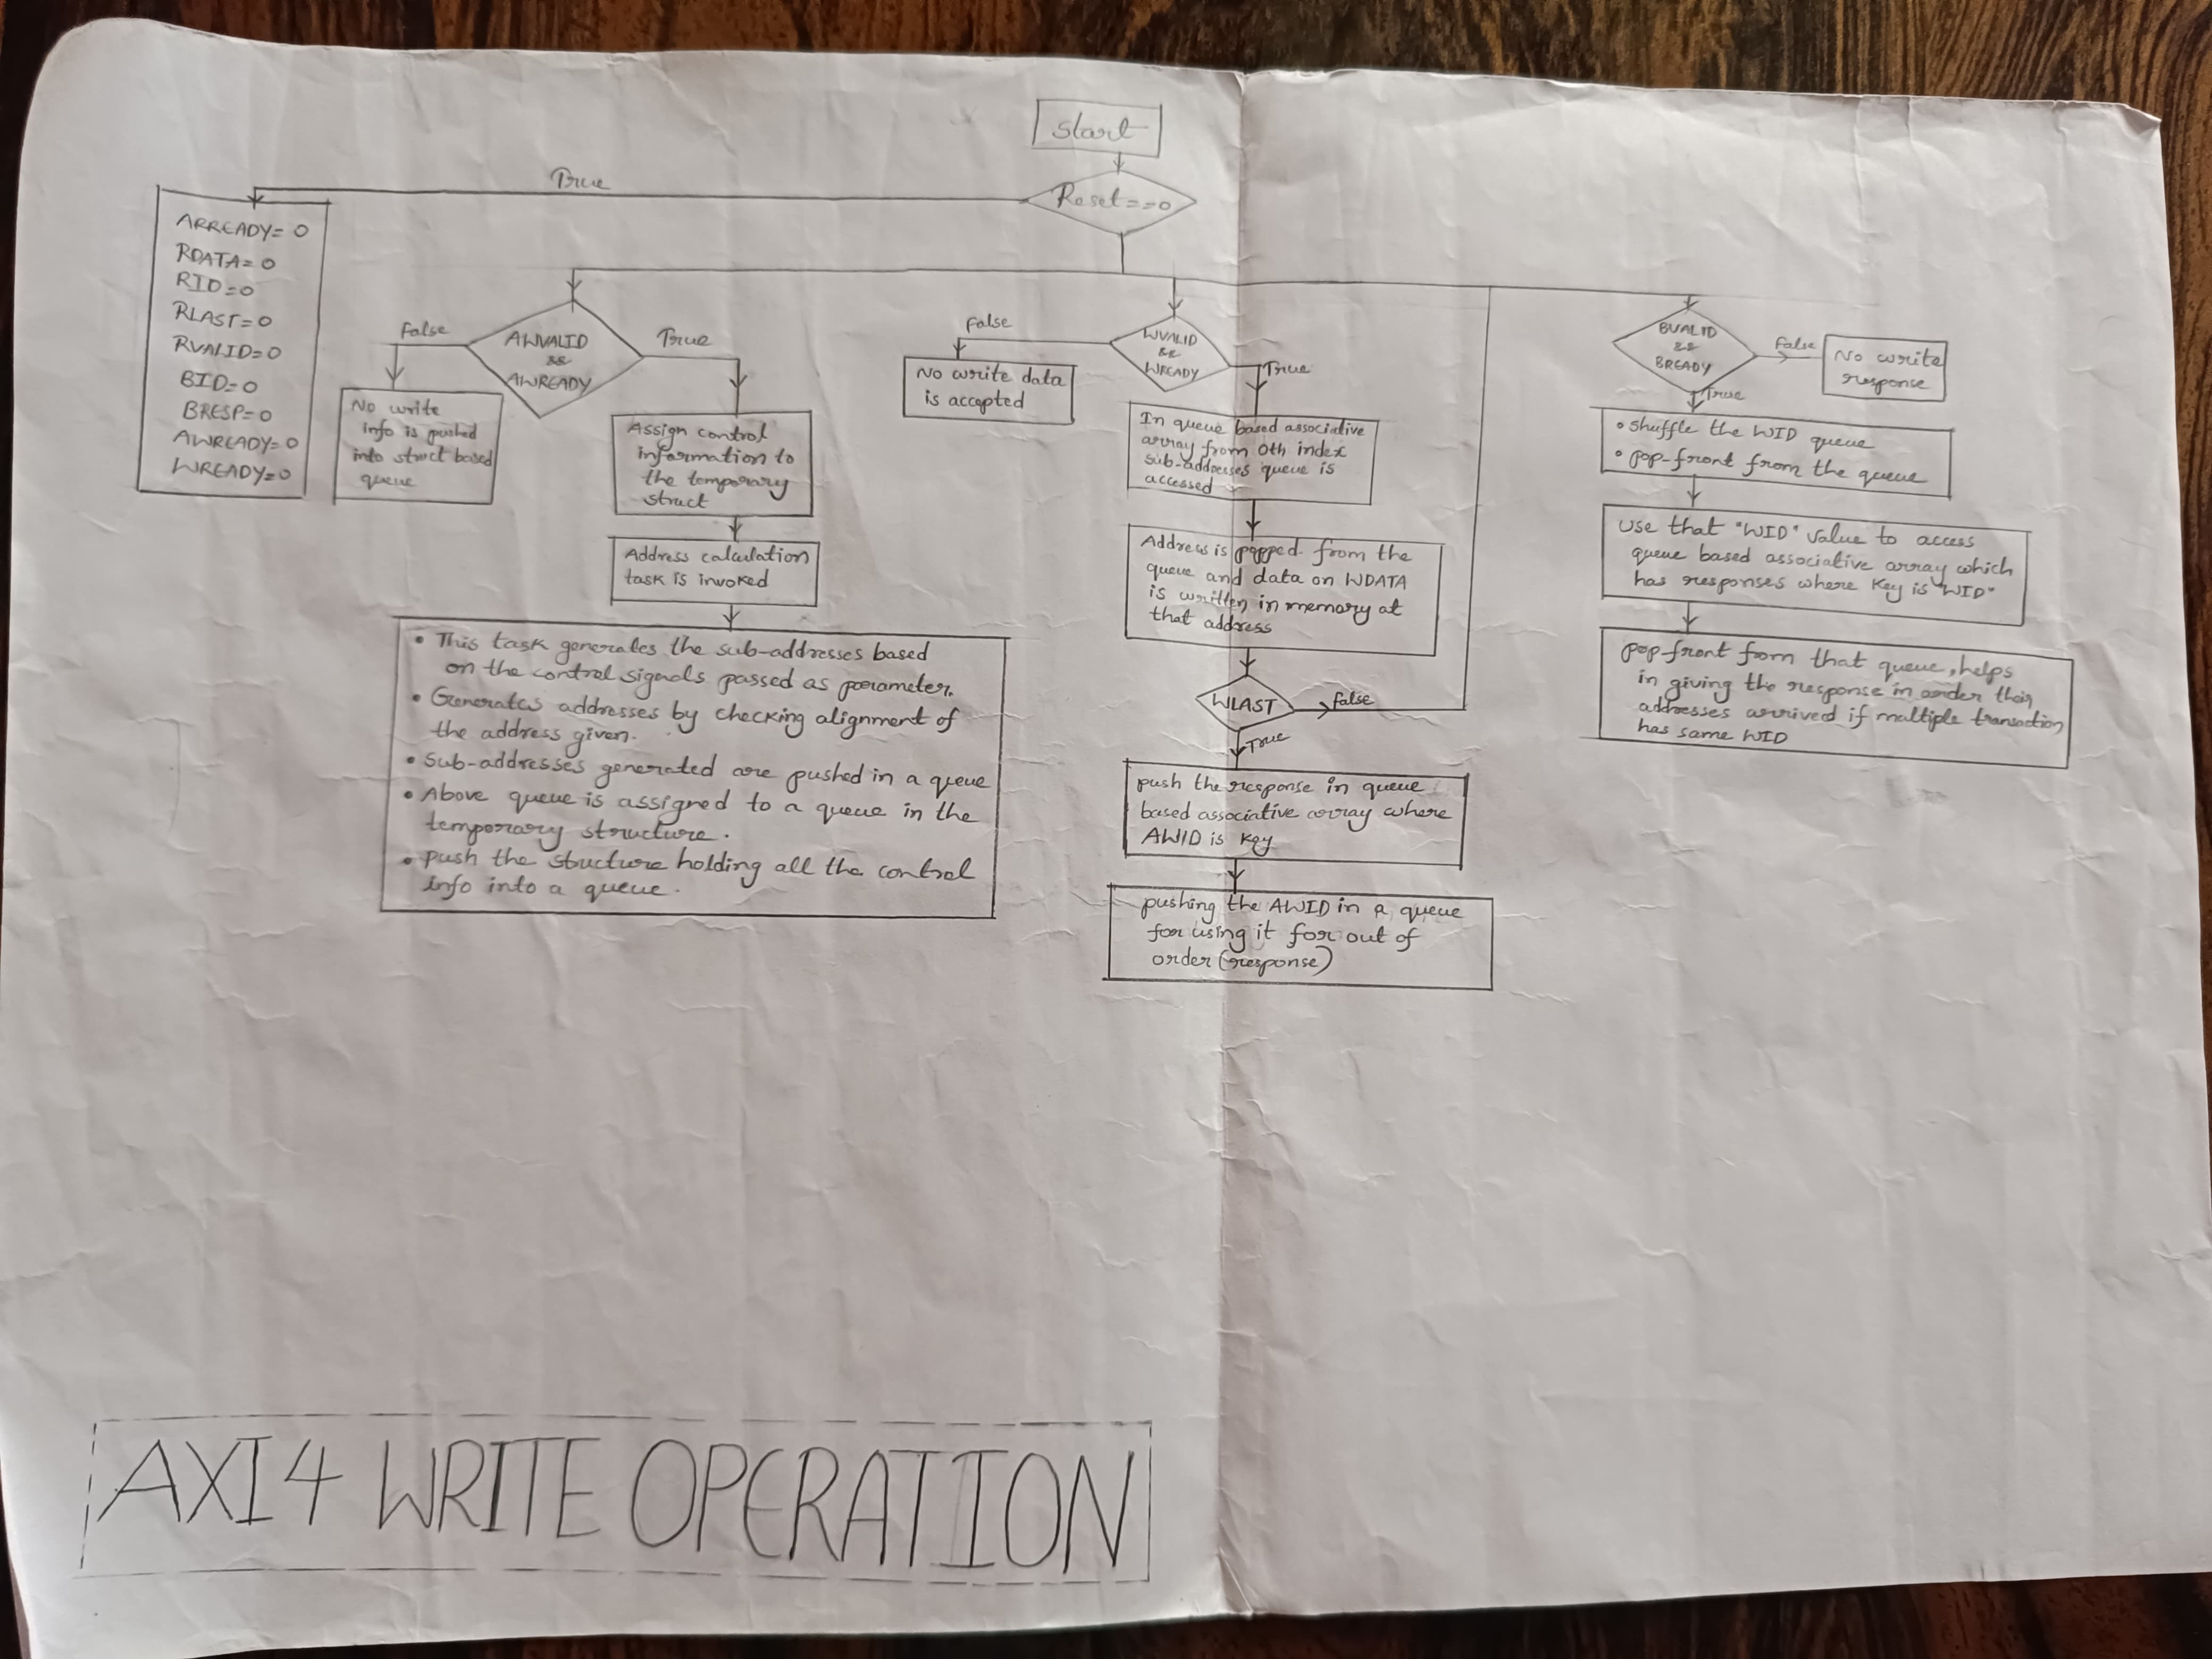 Start
Reset==0
True
ARREADY=0
RDATA=0
RID=0
RLAST=0
RVALID=0
BID=0
BRESP=0
AWREADY=0
WREADY=0
AWVALID
&&
AWREADY
False
True
No write
info is pushed
into struct based
queue
Assign control
information to
the temporary
struct
Address calculation
task is invoked
• This task generates the sub-addresses based
on the control signals passed as parameter.
• Generates addresses by checking alignment of
the address given.
• Sub-addresses generated are pushed in a queue
• Above queue is assigned to a queue in the
temporary structure.
• push the stucture holding all the control
info into a queue.
WVALID
&&
WREADY
False
True
No write data
is accepted
In queue based associative
array from 0th index
sub-addresses queue is
accessed
Address is popped from the
queue and data on WDATA
is written in memory at
that address
WLAST
False
True
push the response in queue
based associative array where
AWID is key
pushing the AWID in a queue
for using it for out of
order (response)
BVALID
&&
BREADY
False
True
No write
response
• shuffle the WID queue
• pop-front from the queue
use that "WID" value to access
queue based associative array which
has responses where key is "WID"
pop-front from that queue, helps
in giving the response in order their
addresses arrived if multiple transaction
has same WID
AXI4 WRITE OPERATION